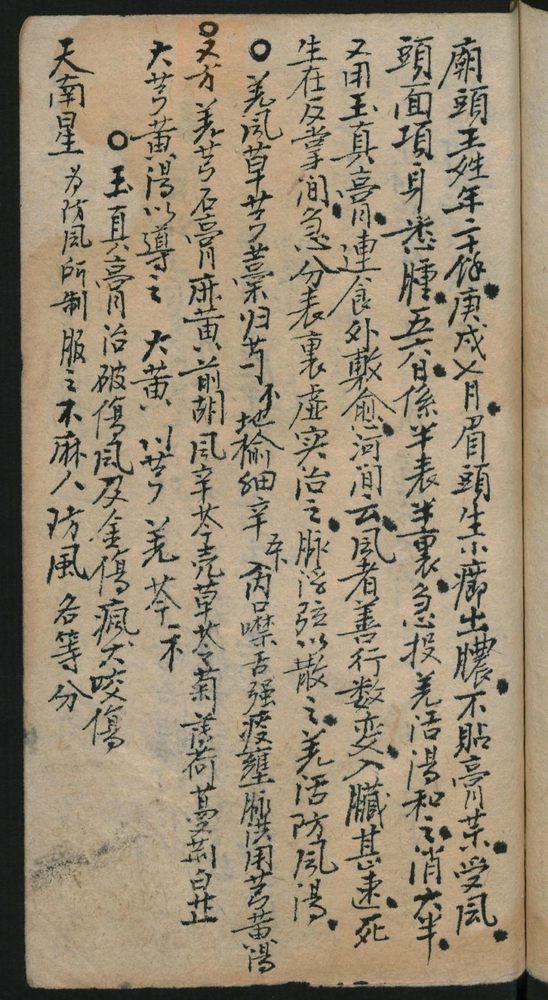 廟頭王姓年二十餘庚戌七月眉頭生小癤出膿不貼膏葯受風
頭面項身悉腫五六日係半表半裏急投羗活湯和之消大半
又用玉真膏連食外敷愈河间云風者善行数变入臟甚速死
生在反掌间急分表裏虚实治之脉浮弦以散之羗活防風湯
○羗風草芎藁归芍地榆細辛 口噤舌强痰壅脉洪用芎黄湯
○又方羗芎石膏麻黄前胡風辛芩壳草苓菊薄荷蔓荆白芷
大芎黄湯以導之 大黄 川芎 羗 芩
○玉真膏治破傷風及金傷瘋犬咬傷
天南星 为防風所制服之不麻人 防風 各等分